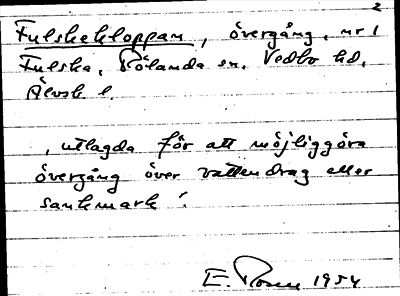 2
Fulskekloppan, övergång, nr 1
Fulska, Rölanda sn. Vedbo hd.
Älvsb l.
, utlagda för att möjliggöra
övergång över vattendrag eller
sankmark'.
E. Rosen 1954